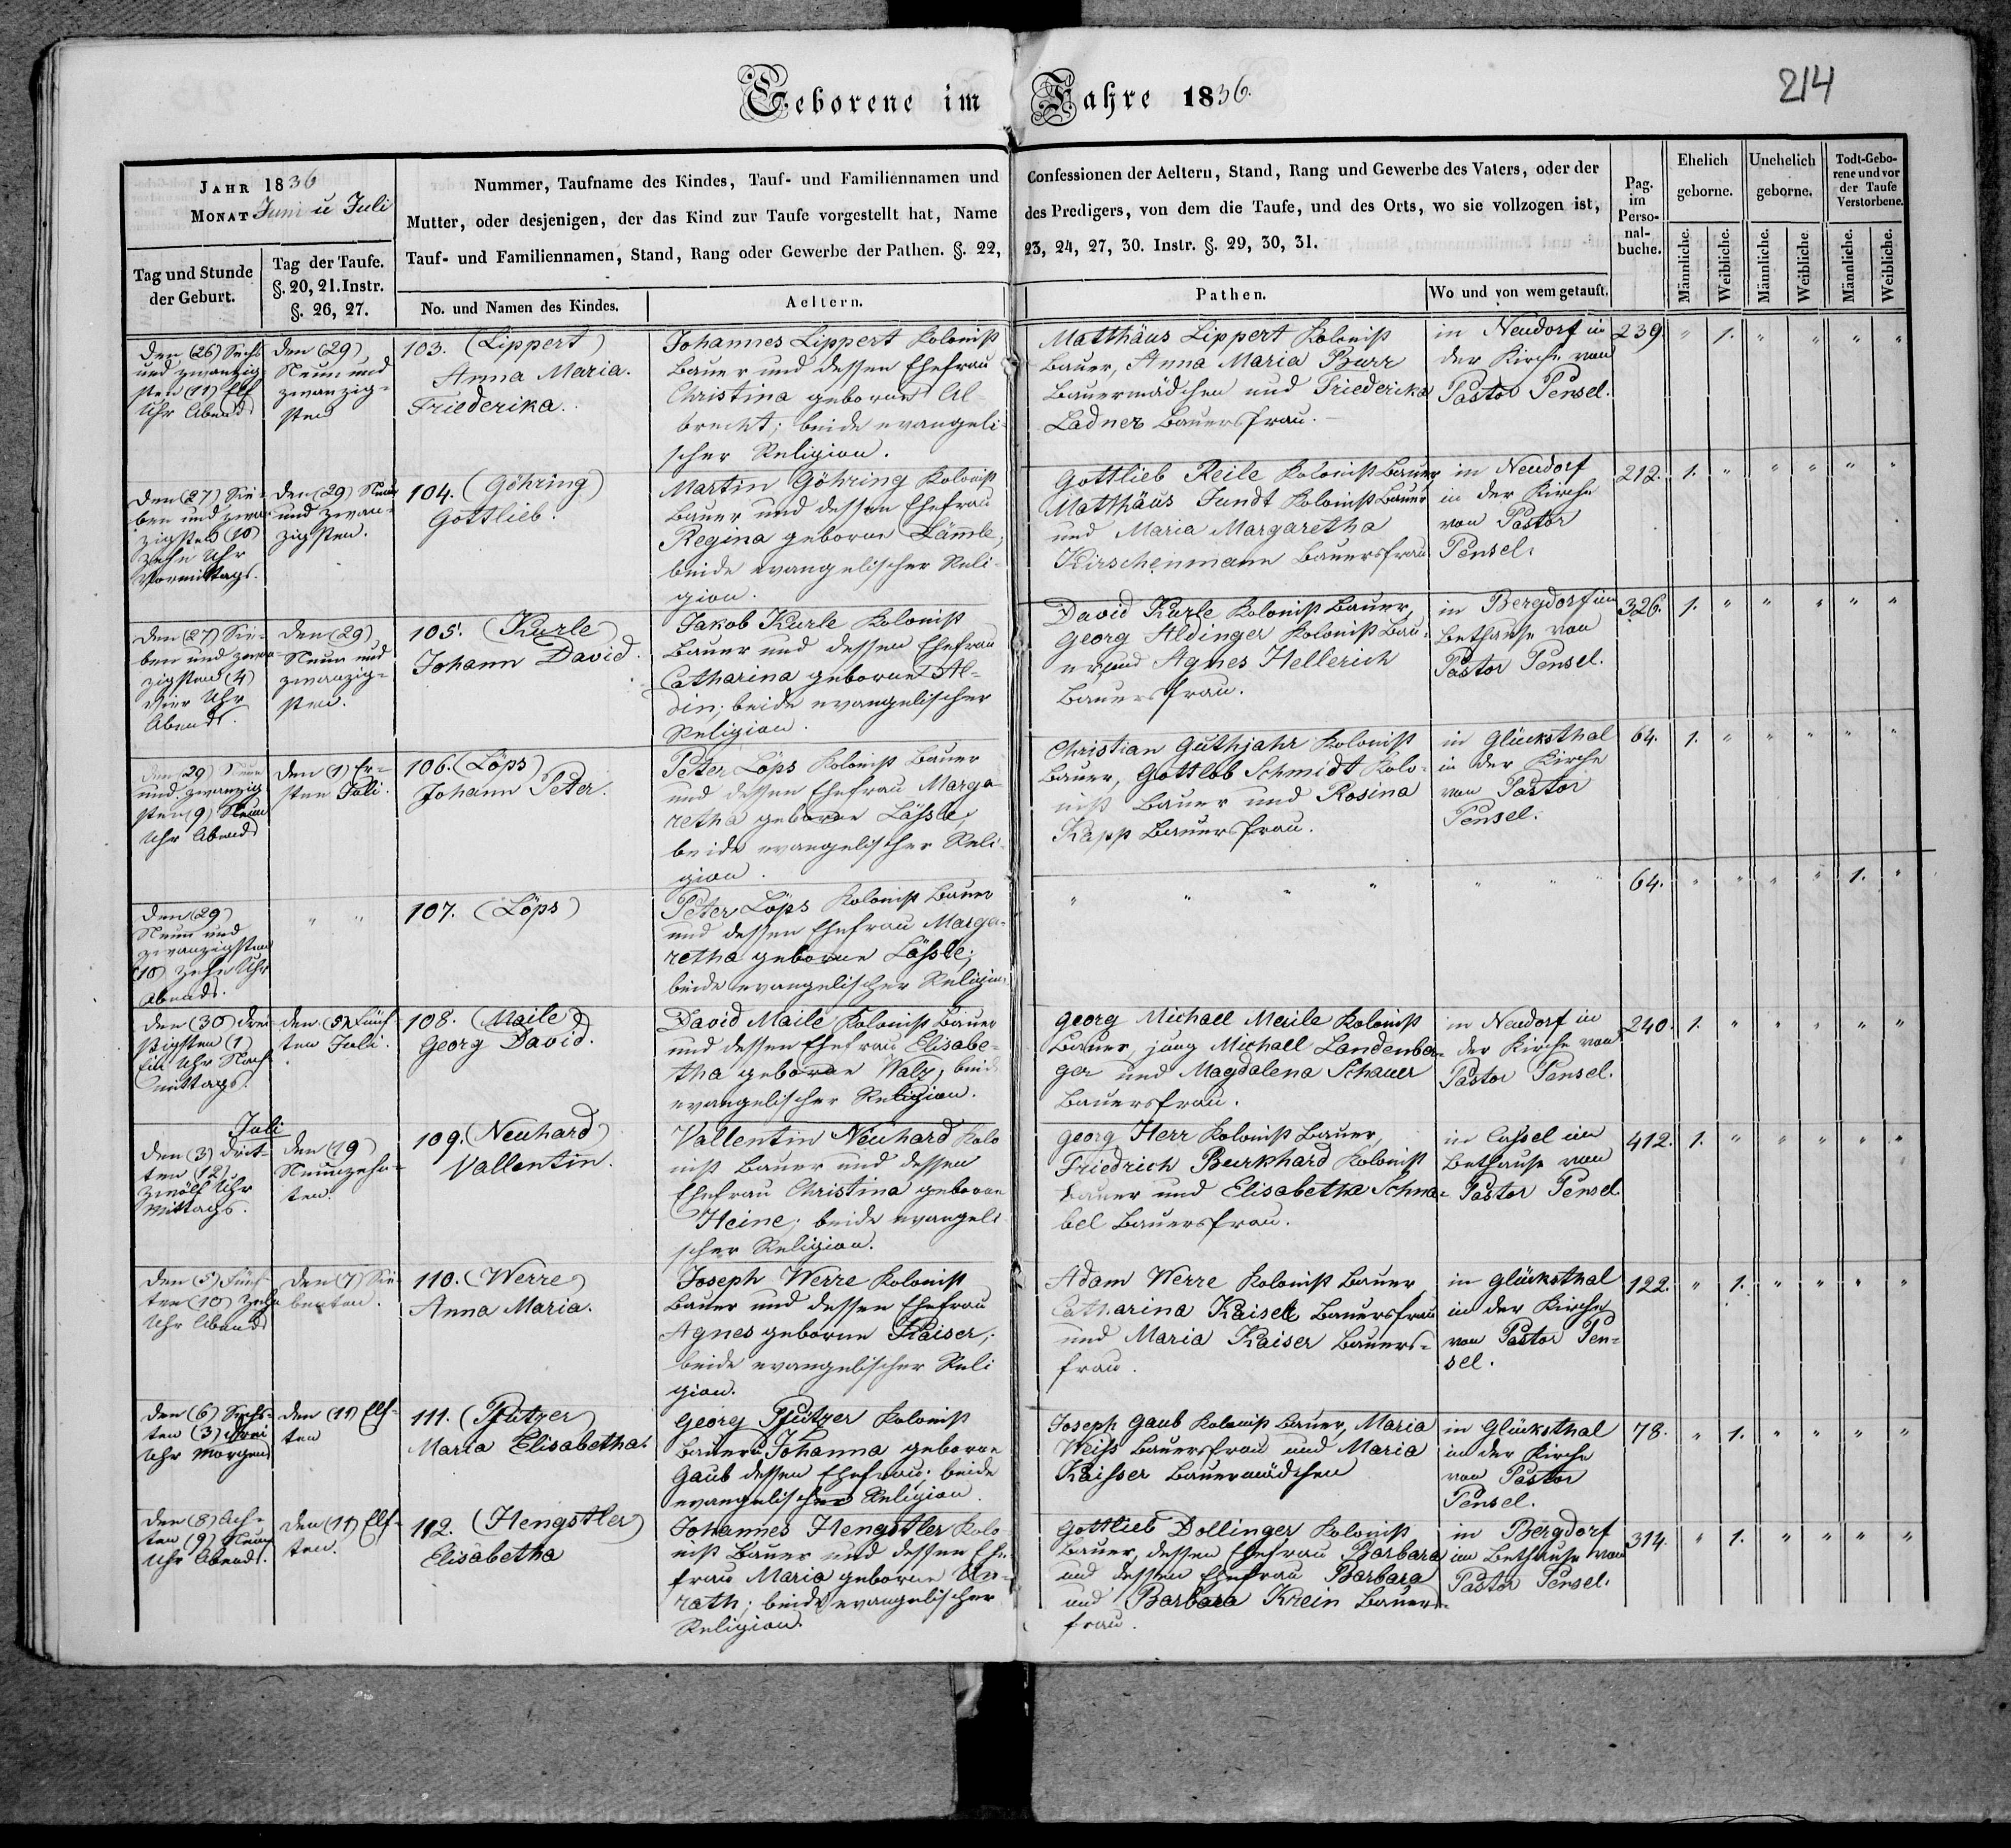 Geborene im Jahre 1836.
214
JAHR 1836
MONAT Juni u Juli
Tag und Stunde
der Geburt.
Tag der Taufe.
§. 20, 21. Instr.
§. 26, 27.
Nummer, Taufname des Kindes, Tauf- und Familiennamen und
Mutter, oder desjenigen, der das Kind zur Taufe vorgestellt hat, Name
Tauf- und Familiennamen, Stand, Rang oder Gewerbe der Pathen. §. 22,
No. und Namen des Kindes.
Aeltern.
Confessionen der Aeltern, Stand, Rang und Gewerbe des Vaters, oder der
des Predigers, von dem die Taufe, und des Orts, wo sie vollzogen ist,
23, 24, 27, 30. Instr. §. 29, 30, 31.
Pathen.
Wo und von wem getauft.
Pag.
im
Perso-
nal-
buche.
Ehelich
geborne.
Unehelich
geborne.
Todt-Gebo-
rene und vor
der Taufe
Verstorbene.
Männliche.
Weibliche.
Männliche.
Weibliche.
Männliche.
Weibliche.
den (26) Sechs
und zwanzig
sten (11) Elf
Uhr Abends
den (29)
Neun und
zwanzig-
sten
103. (Lippert)
Anna Maria.
Friederika.
Johannes Lippert Kolonist
Bauer und dessen Ehefrau
Christina geborne Al-
brecht; beide evangeli-
scher Religion.
Matthäus Lippert Kolonist
Bauer, Anna Maria Burr
Bauermädchen und Friederika
Ladner Bauersfrau.
in Neudorf in
der Kirche von
Pastor Pensel.
239. " 1. " " " "
den (27) Sie-
ben und zwan-
zigsten (10)
Zehn Uhr
Vormittags.
den (29) Neun
und zwan-
zigsten.
104. (Göhring)
Gottlieb.
Martin Göhring Kolonist
Bauer und dessen Ehefrau
Regina geborne Lämle,
beide evangelischer Reli-
gion.
Gottlieb Reile Kolonist Bauer
Matthäus Jundt Kolonist Bauer
und Maria Margaretha
Kirschenmann Bauersfrau
in Neudorf
in der Kirche
von Pastor
Pensel.
212. 1. " " " " "
den (27) Sie-
ben und zwan-
zigsten (4)
Vier Uhr
Abends.
den (29)
Neun und
zwanzig-
sten.
105. (Kurle)
Johann David.
Jakob Kurle Kolonist
Bauer und dessen Ehefrau
Catharina geborne Al-
din; beide evangelischer
Religion.
David Kurle Kolonist Bauer,
Georg Aldinger Kolonist Bau-
er und Agnes Hellerich
Bauersfrau.
in Bergdorf im
Bethause von
Pastor Pensel.
326. 1. " " " " "
den (29) Neun
und zwanzig
sten (9) Neun
Uhr Abends
den (1) Er-
sten Juli.
106. (Löps)
Johann Peter.
Peter Löps Kolonist Bauer
und dessen Ehefrau Marga-
retha geborne Lässle,
beide evangelischer Reli-
gion.
Christian Guthjahr Kolonist
Bauer, Gottlob Schmidt Kolo-
nist Bauer und Rosina
Kapp Bauersfrau.
in Glücksthal
in der Kirche
von Pastor
Pensel.
64. 1. " " " " "
den (29)
Neun und
zwanzigsten
(10) Zehn Uhr
Abends.
" "
107. (Löps)
Peter Löps Kolonist Bauer
und dessen Ehefrau Marga-
retha geborne Lässle;
beide evangelischer Religion.
" " " " " " "
64. " " " " 1. "
den (30) Drei-
ßigsten (1)
Ein Uhr Nach-
mittags.
den (5) Fünf-
ten Juli.
108. (Maile)
Georg David.
David Maile Kolonist Bauer
und dessen Ehefrau Elisabe-
tha geborne Walz, beide
evangelischer Religion.
Georg Michael Maile Kolonist
Bauer, jung Michael Landenber-
ger und Magdalena Schauer
Bauersfrau.
in Neudorf in
der Kirche von
Pastor Pensel.
240. 1. " " " " "
Juli
den (3) Drit-
ten (12)
Zwölf Uhr
Mittags.
den (19)
Neunzehn-
ten.
109. (Neuhard)
Vallentin.
Vallentin Neuhard Kolo
nist Bauer und dessen
Ehefrau Christina geborne
Heine; beide evangeli
scher Religion.
Georg Herr Kolonist Bauer,
Friedrich Burkhard Kolonist
Bauer und Elisabetha Schna-
bel Bauersfrau.
in Cassel im
Bethause von
Pastor Pensel
412. 1. " " " " "
den (5) Fünf-
ten (10) Zehn
Uhr Abends
den (7) Sie-
benten.
110. (Werre)
Anna Maria.
Joseph Werre Kolonist
Bauer und dessen Ehefrau
Agnes geborne Kaiser;
beide evangelischer Reli
gion.
Adam Werre Kolonist Bauer
Catharina Kaisele Bauersfrau
und Maria Kaiser Bauers-
frau.
in Glücksthal
in der Kirche
von Pastor Pen-
sel.
122. " 1. " " " "
den (6) Sechs-
ten (3) Drei
Uhr Morgens
den (11) Elf-
ten
111. (Pfützer)
Maria Elisabetha.
Georg Pfützer Kolonist
Bauer u Johanna geborne
Gaub dessen Ehefrau; beide
evangelischer Religion.
Joseph Gaub Kolonist Bauer, Maria
Weiss Bauersfrau und Maria
Kaisser Bauermädchen
in Glücksthal
in der Kirche
von Pastor
Pensel.
78. " 1. " " " "
den (8) Ach-
ten (9) Neun
Uhr Abends.
den (11) Elf-
ten.
112. (Hengstler)
Elisabetha
Johannes Hengstler Kolo
nist Bauer und dessen Ehe-
frau Maria geborne Un-
rath; beide evangelischer
Religion.
Gottlieb Dollinger Kolonist
Bauer, dessen Ehefrau Barbara
und dessen Ehefrau Barbara
und Barbara Krein Bauers-
frau.
in Bergdorf
im Bethause von
Pastor Pensel.
314. " 1. " " " "